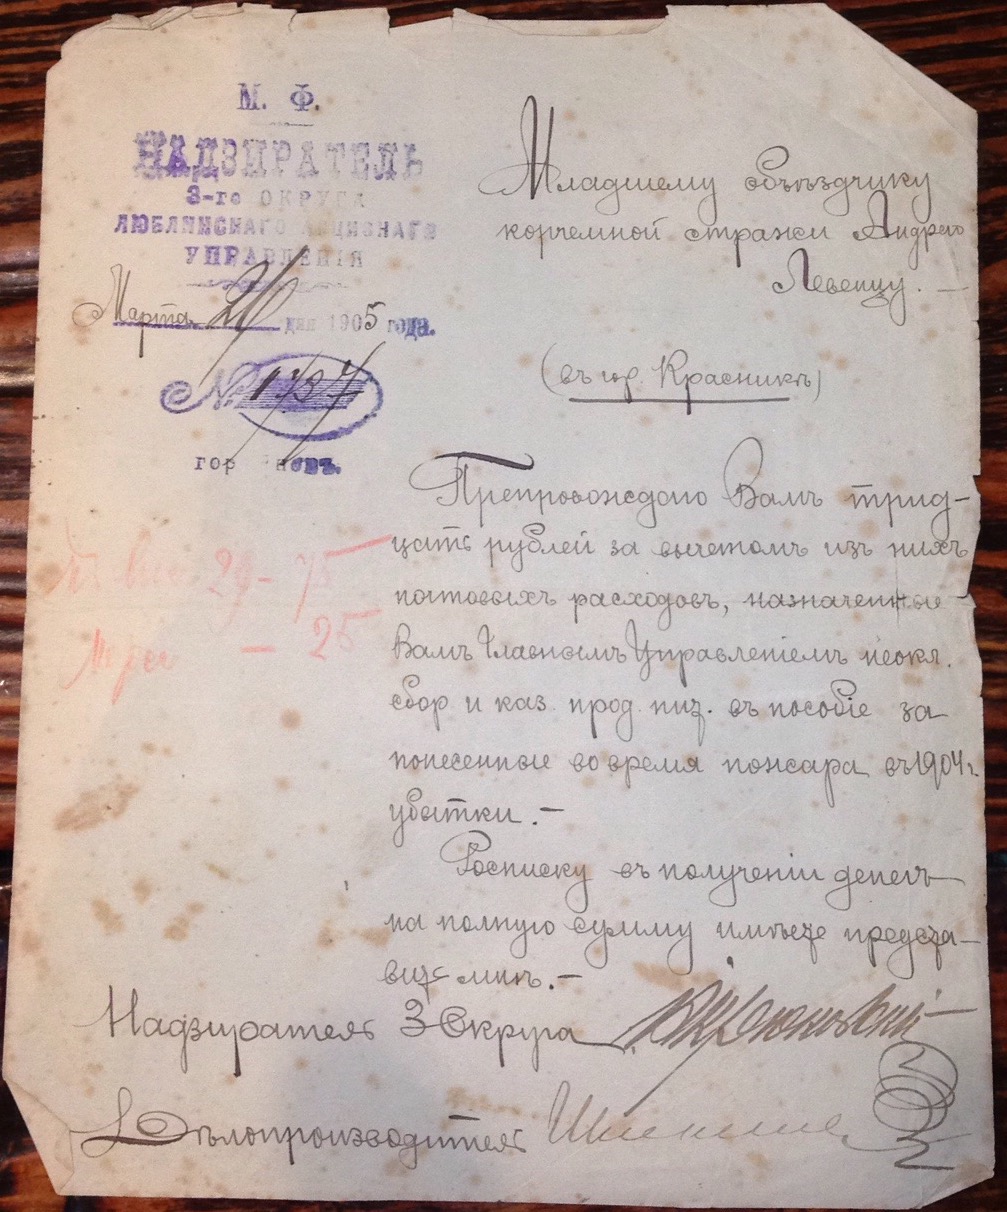 М. Ф.
НАДЗИРАТЕЛЬ
3-го ОКРУГА
ЛЮБЛИНСКАГО АКЦИЗНАГО
УПРАВЛЕНІЯ
Марта 24 дня 1905 года.
№ 1737
гор новъ.
Младшему объѣздчику
корчемной стражи Андрею
Левенцу. —
(въ гор. Красникѣ)
Препровождаю Вамъ трид-
цать рублей за вычетомъ изъ нихъ
почтовыхъ расходовъ, назначенные
Вамъ Главнымъ Управленіемъ неокл.
сбор и каз. прод. пит. въ пособіе за
понесенные во время пожара въ 1904 г.
убытки. —
Росписку въ полученіи денегъ
на полную сумму имѣете предста-
вить мнѣ. —
29 - 75
- 25
Надзиратель 3 Округа
Дѣлопроизводитель